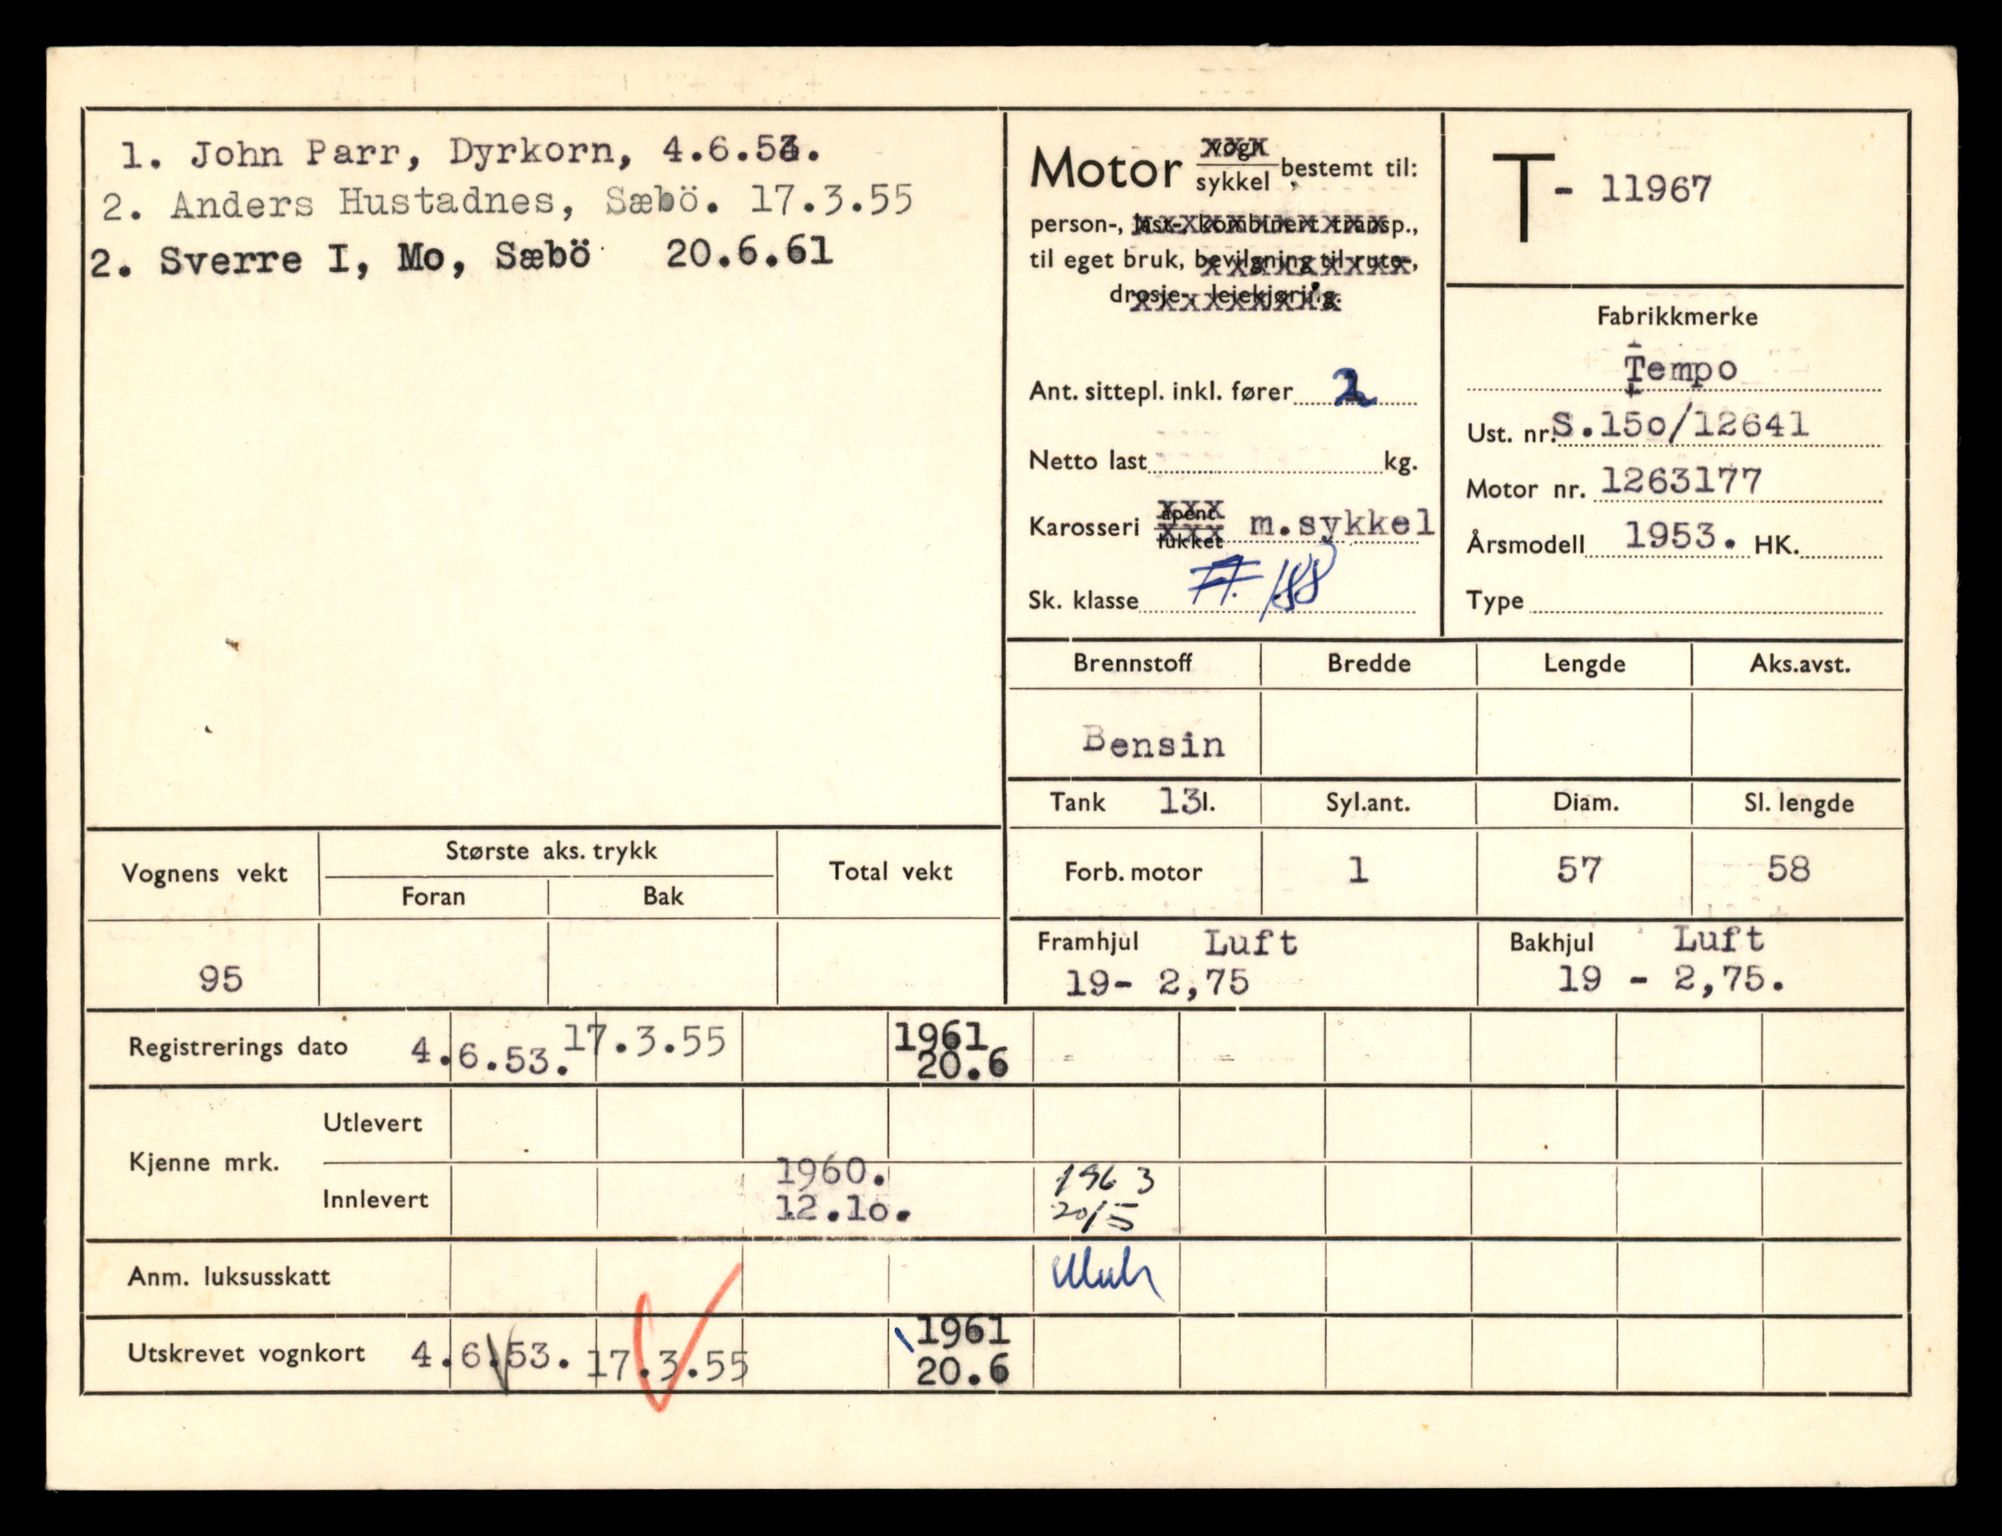 1. John Parr, Dyrkorn, 4.6.53.
2. Anders Hustadnes, Sæbö. 17.3.55
2. Sverre I, Mo, Sæbö 20.6.61
Motor vogn/sykkel bestemt til:
person-, last-, kombinert transp.,
til eget bruk, bevilgning til rute-,
drosje-, leiekjøring.
Ant. sittepl. inkl. fører 2
Netto last kg.
Karosseri åpent/lukket m.sykkel
Sk. klasse
T- 11967
Fabrikkmerke
Tempo
Ust. nr. S.15o/12641
Motor nr. 1263177
Årsmodell 1953. HK.
Type
Brennstoff Bredde Lengde Aks.avst.
Bensin
Tank 13 l. Syl.ant. Diam. Sl. lengde
Forb. motor 1 57 58
Framhjul Luft Bakhjul Luft
19- 2,75 19 - 2,75.
Vognens vekt Største aks. trykk Total vekt
Foran Bak
95
Registrerings dato 4.6.53. 17.3.55 1961 20.6
Kjenne mrk.
Utlevert
Innlevert 1960. 12.1o. 1963 20/5
Anm. luksusskatt
Utskrevet vognkort 4.6.53. 17.3.55 1961 20.6